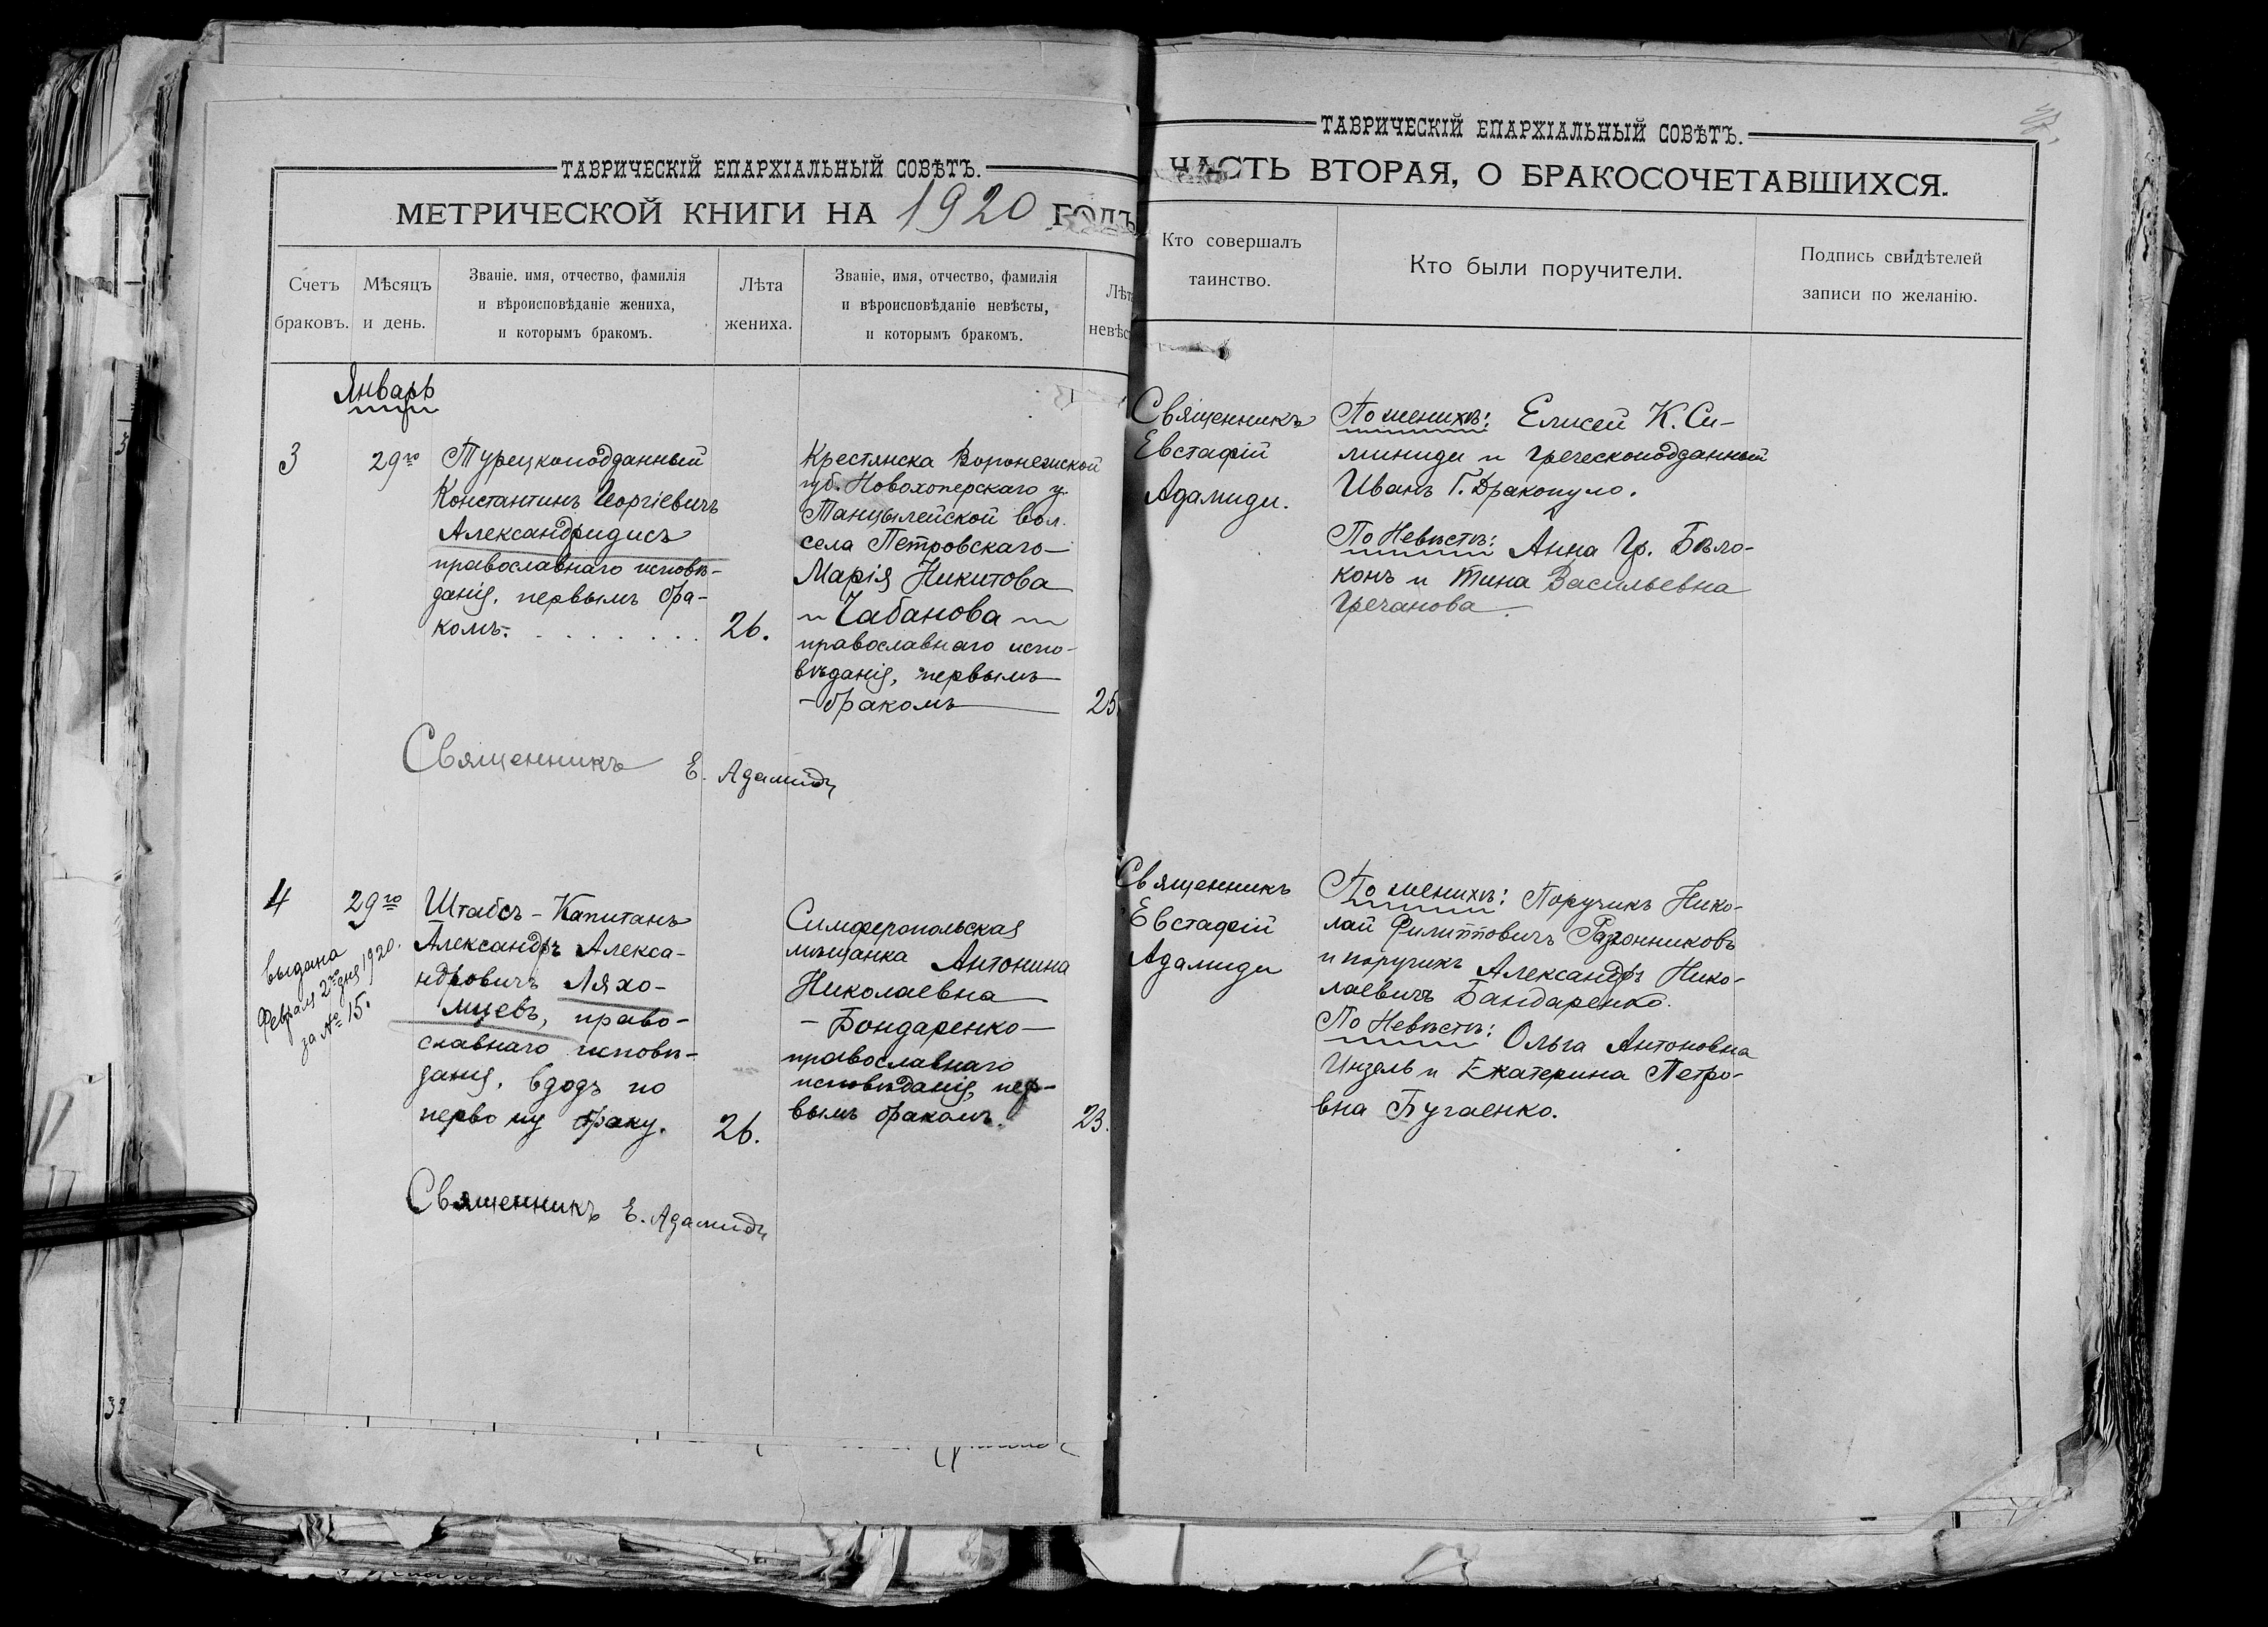 ТАВРИЧЕСКІЙ ЕПАРХІАЛЬНЫЙ СОВѢТЪ.
МЕТРИЧЕСКОЙ КНИГИ НА 1920 ГОДЪ
Счетъ
браковъ.
Мѣсяцъ
и день.
Званіе, имя, отчество, фамилія
и вѣроисповѣданіе жениха,
и которымъ бракомъ.
Лѣта
жениха.
Званіе, имя, отчество, фамилія
и вѣроисповѣданіе невѣсты,
и которымъ бракомъ.
Январь
3
29го
Турецкоподданный
Константинъ Георгіевичъ
Александридисъ
православнаго исповѣ-
данія, первымъ бра-
комъ.
26.
Крестянска Воронежской
губ. Новохоперскаго у.
Танцылейской вол.
села Петровскаго
Марія Никитова
Чабанова
православнаго испо-
вѣданія, первымъ
бракомъ
25
Священникъ Е. Адамиди
4
29го
выдана
Февраля 2го дня 1920.
за № 15.
Штабсъ-Капитанъ
Александръ Алекса-
ндровичъ Ляхо-
мцевъ, право-
славнаго исповѣ-
данія, вдодъ по
первому браку.
26.
Симферопольская
мѣщанка Антонина
Николаевна
Бондаренко
православнаго
исповѣданія, пер-
вымъ бракомъ.
23.
Священникъ Е. Адамиди
ТАВРИЧЕСКІЙ ЕПАРХІАЛЬНЫЙ СОВѢТЪ.
ЧАСТЬ ВТОРАЯ, О БРАКОСОЧЕТАВШИХСЯ.
Кто совершалъ
таинство.
Кто были поручители.
Подпись свидѣтелей
записи по желанію.
Священникъ
Евстафій
Адамиди.
По женихѣ: Елисей К. Си-
миниди и греческоподданный
Иванъ Г. Дракопуло.
По Невѣстѣ: Анна Гр. Бѣло-
конъ и Тина Васильевна
Гречанова.
Священникъ
Евстафій
Адамиди
По женихѣ: Поручикъ Нико-
лай Филипповичъ
и поручикъ Александръ Нико-
лаевичъ Бандаренко.
По Невѣстѣ: Ольга Антоновна
Инзель и Екатерина Петро-
вна Бугаенко.